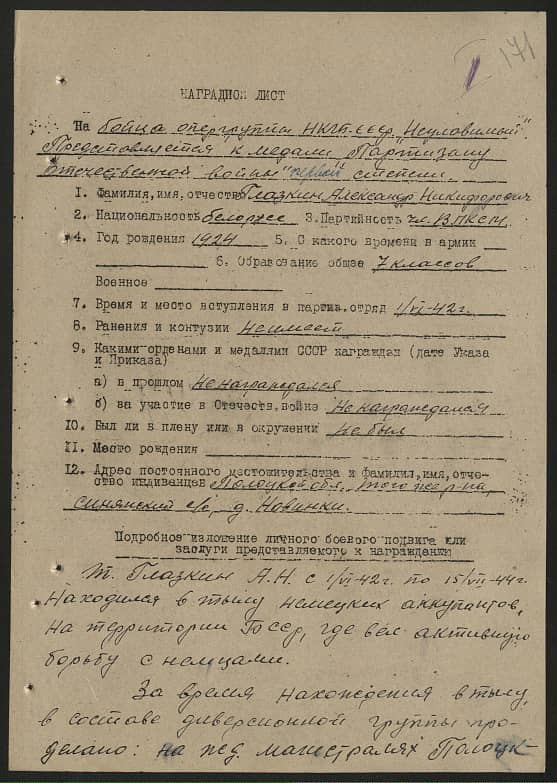 171
НАГРАДНОЙ ЛИСТ
На бойца опергруппы НКГБ СССР „Неуловимый"
Представляется к медали „Партизану
отечественной войны" первой степени.
1. Фамилия, имя, отчество Глазкин Александр Никифорович
2. Национальность белорус 3. Партийность чл. ВЛКСМ
4. Год рождения 1924 5. С какого времени в армии
6. Образование общее 7 классов
Военное
7. Время и место вступления в партиз. отряд 1/VI-42г.
8. Ранения и контузии не имеет
9. Какими орденами и медалями СССР награжден (дате Указа
и Приказа)
а) в прошлом не награждался
б) за участие в Отечеств. войне не награждался
10. Был ли в плену или в окружении не был
11. Место рождения
12. Адрес постоянного местожительства и фамилия, имя, отче-
ство иждивенцев Полоцкой обл., того же р-на,
синянский с/с, д. Новинки.
Подробное изложение личного боевого подвига или
заслуги представляемого к награждению
Т. Глазкин А.Н. с 1/VI-42г. по 15/VII-44г.
находился в тылу немецких аккупантов,
на территории БССР, где вел активную
борьбу с немцами.
За время нахождения в тылу,
в составе диверсионной группы про-
делано: на жд. магистралях Полоцк-